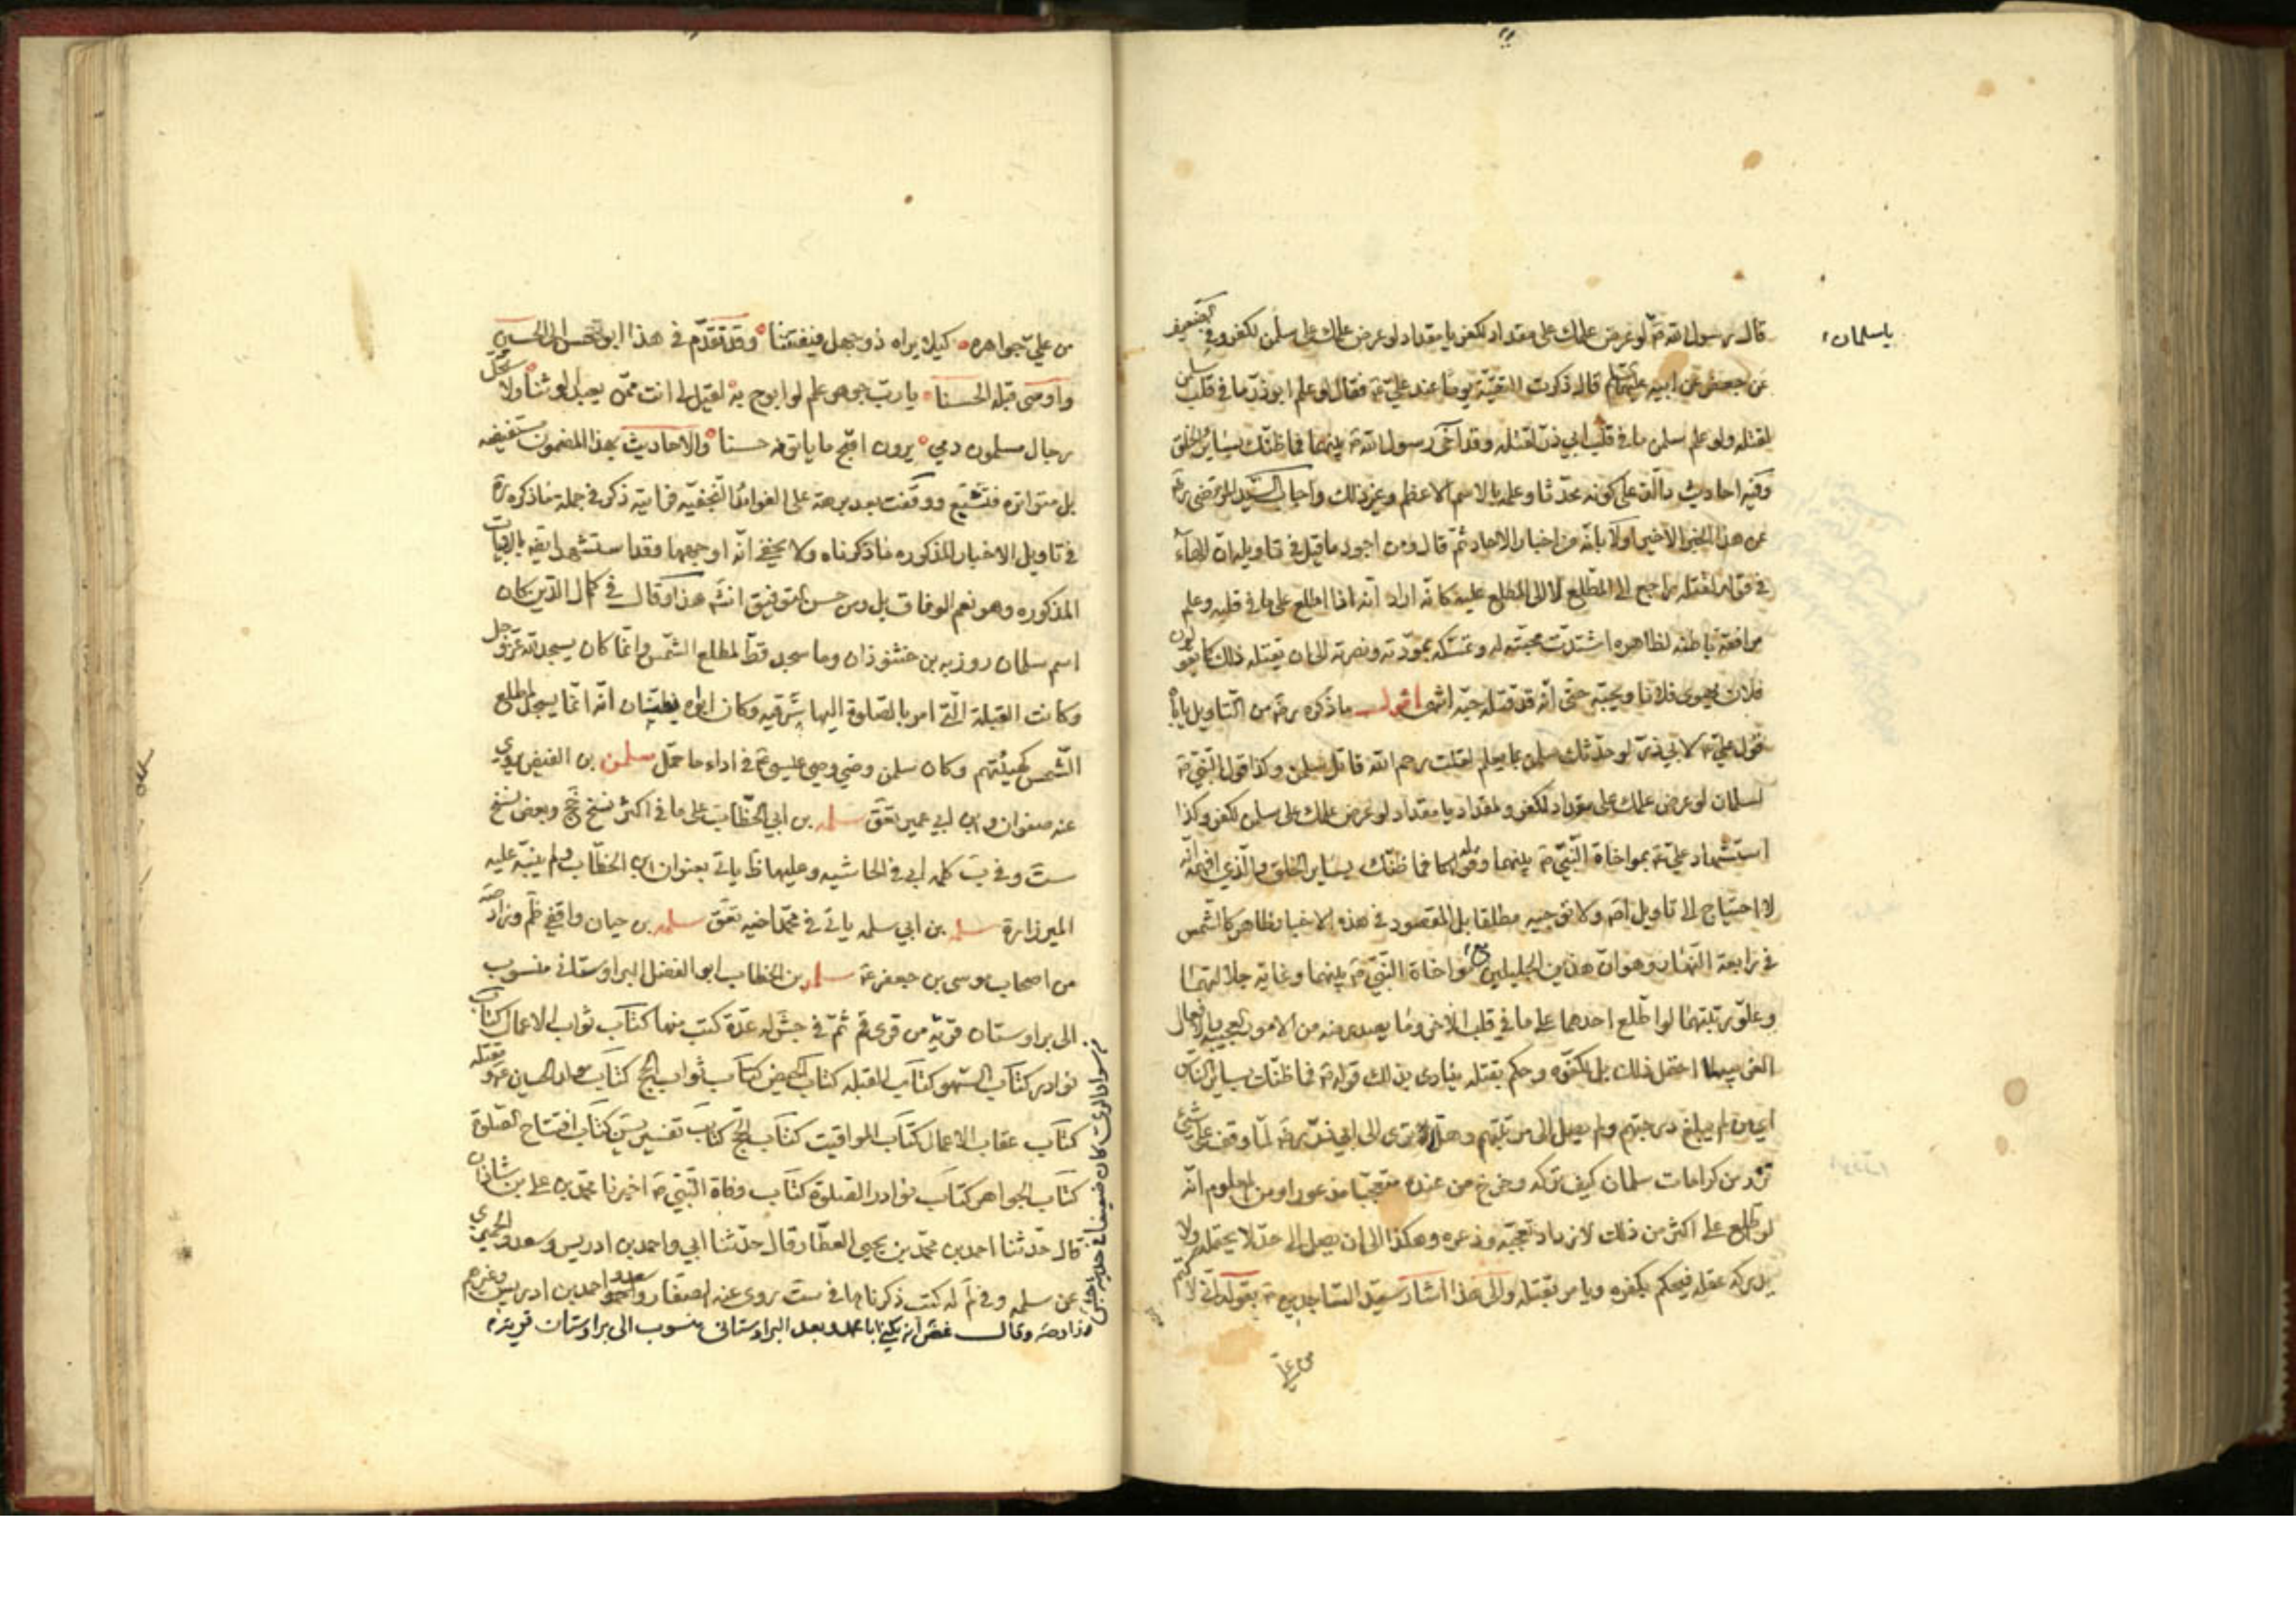 يا سلمان
قال رسول الله ص لو عرض علمك على مقداد لكفر يا مقداد لو عرض علمك على سلمن لكفر وفيه
عن جعفر عن ابيه عليهما قال ذكرت التقية يوما عند علي ع فقال لو علم ابوذر ما في قلب سلمن
لقتله ولو علم سلمن ما في قلب ابي ذر لقتله وقد آخى رسول الله ص بينهما فما ظنك بساير الخلق
وفيه احاديث دالة على كونه محدثا وعلمه بالاسم الاعظم وغير ذلك واجاب السيد المرتضى رض
عن هذا الخبر الاخير اولا بانه من اخبار الاحاد ثم قال ومن اجود ما قيل في تاويله ان الهاء
في قوله لقتله راجع الى المطلع لا الى المطلع عليه كانه اراد انه اذا اطلع على ما في قلبه وعلم
موافقة باطنه لظاهره اشتدت محبته له وتمسكه بمودته ونصرته الى ان يقتله ذلك كما يقولون
فلان يهوى فلانا ويحبه حتى انه قد قتله حبه انتهى اقول ما ذكره ره من التاويل يأباه
قول علي ع لابي ذر لو حدثك سلمن بما يعلم لقلت رحم الله قاتل سلمن وكذا قول النبي ص
لسلمان لو عرض علمك على مقداد لكفر ولمقداد يا مقداد لو عرض علمك على سلمن لكفر وكذا
استشهاد علي ع بمواخاة النبي ص بينهما وقوله فما ظنك بساير الخلق والذي افهمه انه
لا احتياج الى تاويل اصلا ولا توجيه مطلقا بل المقصود في هذه الاخبار ظاهر كالشمس
في رابعة النهار وهو ان هذين الجليلين مع مواخاة النبي ص بينهما وغاية جلالتهما
وعلو رتبتهما لو اطلع احدهما على ما في قلب الاخر وما يصدر منه من الامور العجيبة والافعال
الغريبة لما احتمل ذلك بل لكفره وحكم بقتله ينادي بذلك قوله ع فما ظنك بساير الناس
اي من لم يبلغ درجتهم ولم يصل الى مرتبتهم وهلا ترى الى ابي ذر ره لما وقف على شئ
نزر من كرامات سلمان كيف تركه وخرج من عنده متعجبا مذعورا ومن المعلوم انه
لو اطلع على اكثر من ذلك لازداد تعجبه وذعره وهكذا الى ان يصل الى حد لا يحتمله ولا
يدركه عقله فيحكم بكفره ويامر بقتله والى هذا اشار سيد الساجدين ع بقوله اني لاكتم
من علي
من علمي جواهره كيلا يراه ذو جهل فيفتتنا وقد تقدم في هذا ابو حسن الى الحسين
واوصى قبله الحسنا يا رب جوهر علم لو ابوح به لقيل لي انت ممن يعبد الوثنا ولاستحل
رجال مسلمون دمي يرون اقبح ما ياتونه حسنا والاحاديث بهذا المضمون مستفيضه
بل متواتره فتتبع ووقفت بعد برهة على الفوائد النجفيه فرايته ذكر في جملة ما ذكره ره
في تاويل الاخبار المذكوره ما ذكرناه ولا يخفى انه اوجهها وقد استشهد ايضه بالابيات
المذكوره وهو نعم الوفاق بل من حسن التوفيق انتهى هذا وقال في كمال الدين كان
اسم سلمان روزبه بن خشنوذان وما سجد قط لمطلع الشمس وانما كان يسجد لله عز وجل
وكانت القبلة التي امر بالصلوة اليها شرقيه وكان ابواه يظنان انه انما يسجد لمطلع
الشمس كهيئتهم وكان سلمن وصي وصي عيسى ع في اداء ما حمل سلمن بن الفيض يروي
عنه صفوان وابن ابي عمير تعق سلمه بن ابي الخطاب على ما في اكثر نسخ جخ وبعض نسخ
ست وفي ب كلمه ابي في الحاشيه وعليها ظ ياتي بعنوان ابن الخطاب ولم ينبه عليه
الميرزا ره سلمه بن ابي سلمه ياتي في محمد اخيه تعق سلمه بن حيان واقفي ظم وزاد صه
من اصحاب موسى بن جعفر ع سلمه بن الخطاب ابو الفضل البراوستاني منسوب
الى براوستان قرية من قرى قم ثم في جش له عدة كتب منها كتاب ثواب الاعمال كتاب
نوادر كتاب السهو كتاب القبله كتاب الحيض كتاب ثواب الحج كتاب مولد الحسين ع ومقتله
كتاب عقاب الاعمال كتاب المواقيت كتاب الحج كتاب تفسير يس كتاب افتتاح الصلوة
كتاب الجواهر كتاب نوادر الصلوة كتاب وفاة النبي ص اخبرنا محمد بن علي بن شاذان
قال حدثنا احمد بن محمد بن يحيى العطار قال حدثنا ابي واحمد بن ادريس وسعد والحميري
عن سلمه وفي لم له كتب ذكرناها في ست روى عنه الصفار وسعد واحمد بن ادريس وغيرهم
وزاد صه وقال غض انه يكنى ابا محمد بعد البراوستاني منسوب الى براوستان قرية
من سواد الري كان ضعيفا في حديثه جش